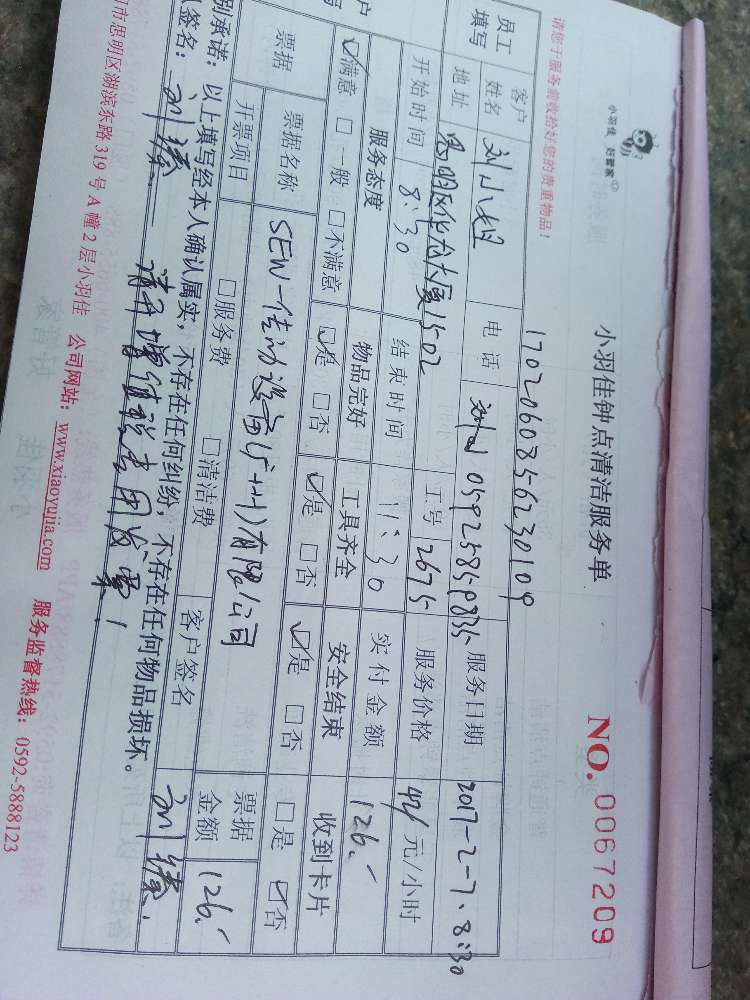 小羽佳 好管家
请您于服务前收拾好您的贵重物品！
小羽佳钟点清洁服务单
NO. 0067209
1702060856230109
员工填写
客户姓名 刘小姐 电话 05925859835 服务日期 2017-2-7. 8:30
地址 思明区华龙大厦1502 工号 2675 服务价格 42/元/小时
开始时间 8:30 结束时间 11:30 实付金额 126.
服务态度 物品完好 工具齐全 安全结束 收到卡片
☑满意 □一般 □不满意 ☑是 □否 ☑是 □否 ☑是 □否 □是 ☑否
票据 票据名称 SEW-传动设备(苏州)有限公司 票据金额 126.
开票项目 □服务费 □清洁费 客户签名 刘
别承诺：以上填写经本人确认属实，不存在任何纠纷，不存在任何物品损坏。
签名：刘
请开增值税专用发票！
市思明区湖滨东路319号A幢2层小羽佳 公司网站：www.xiaoyujia.com 服务监督热线：0592-5888123